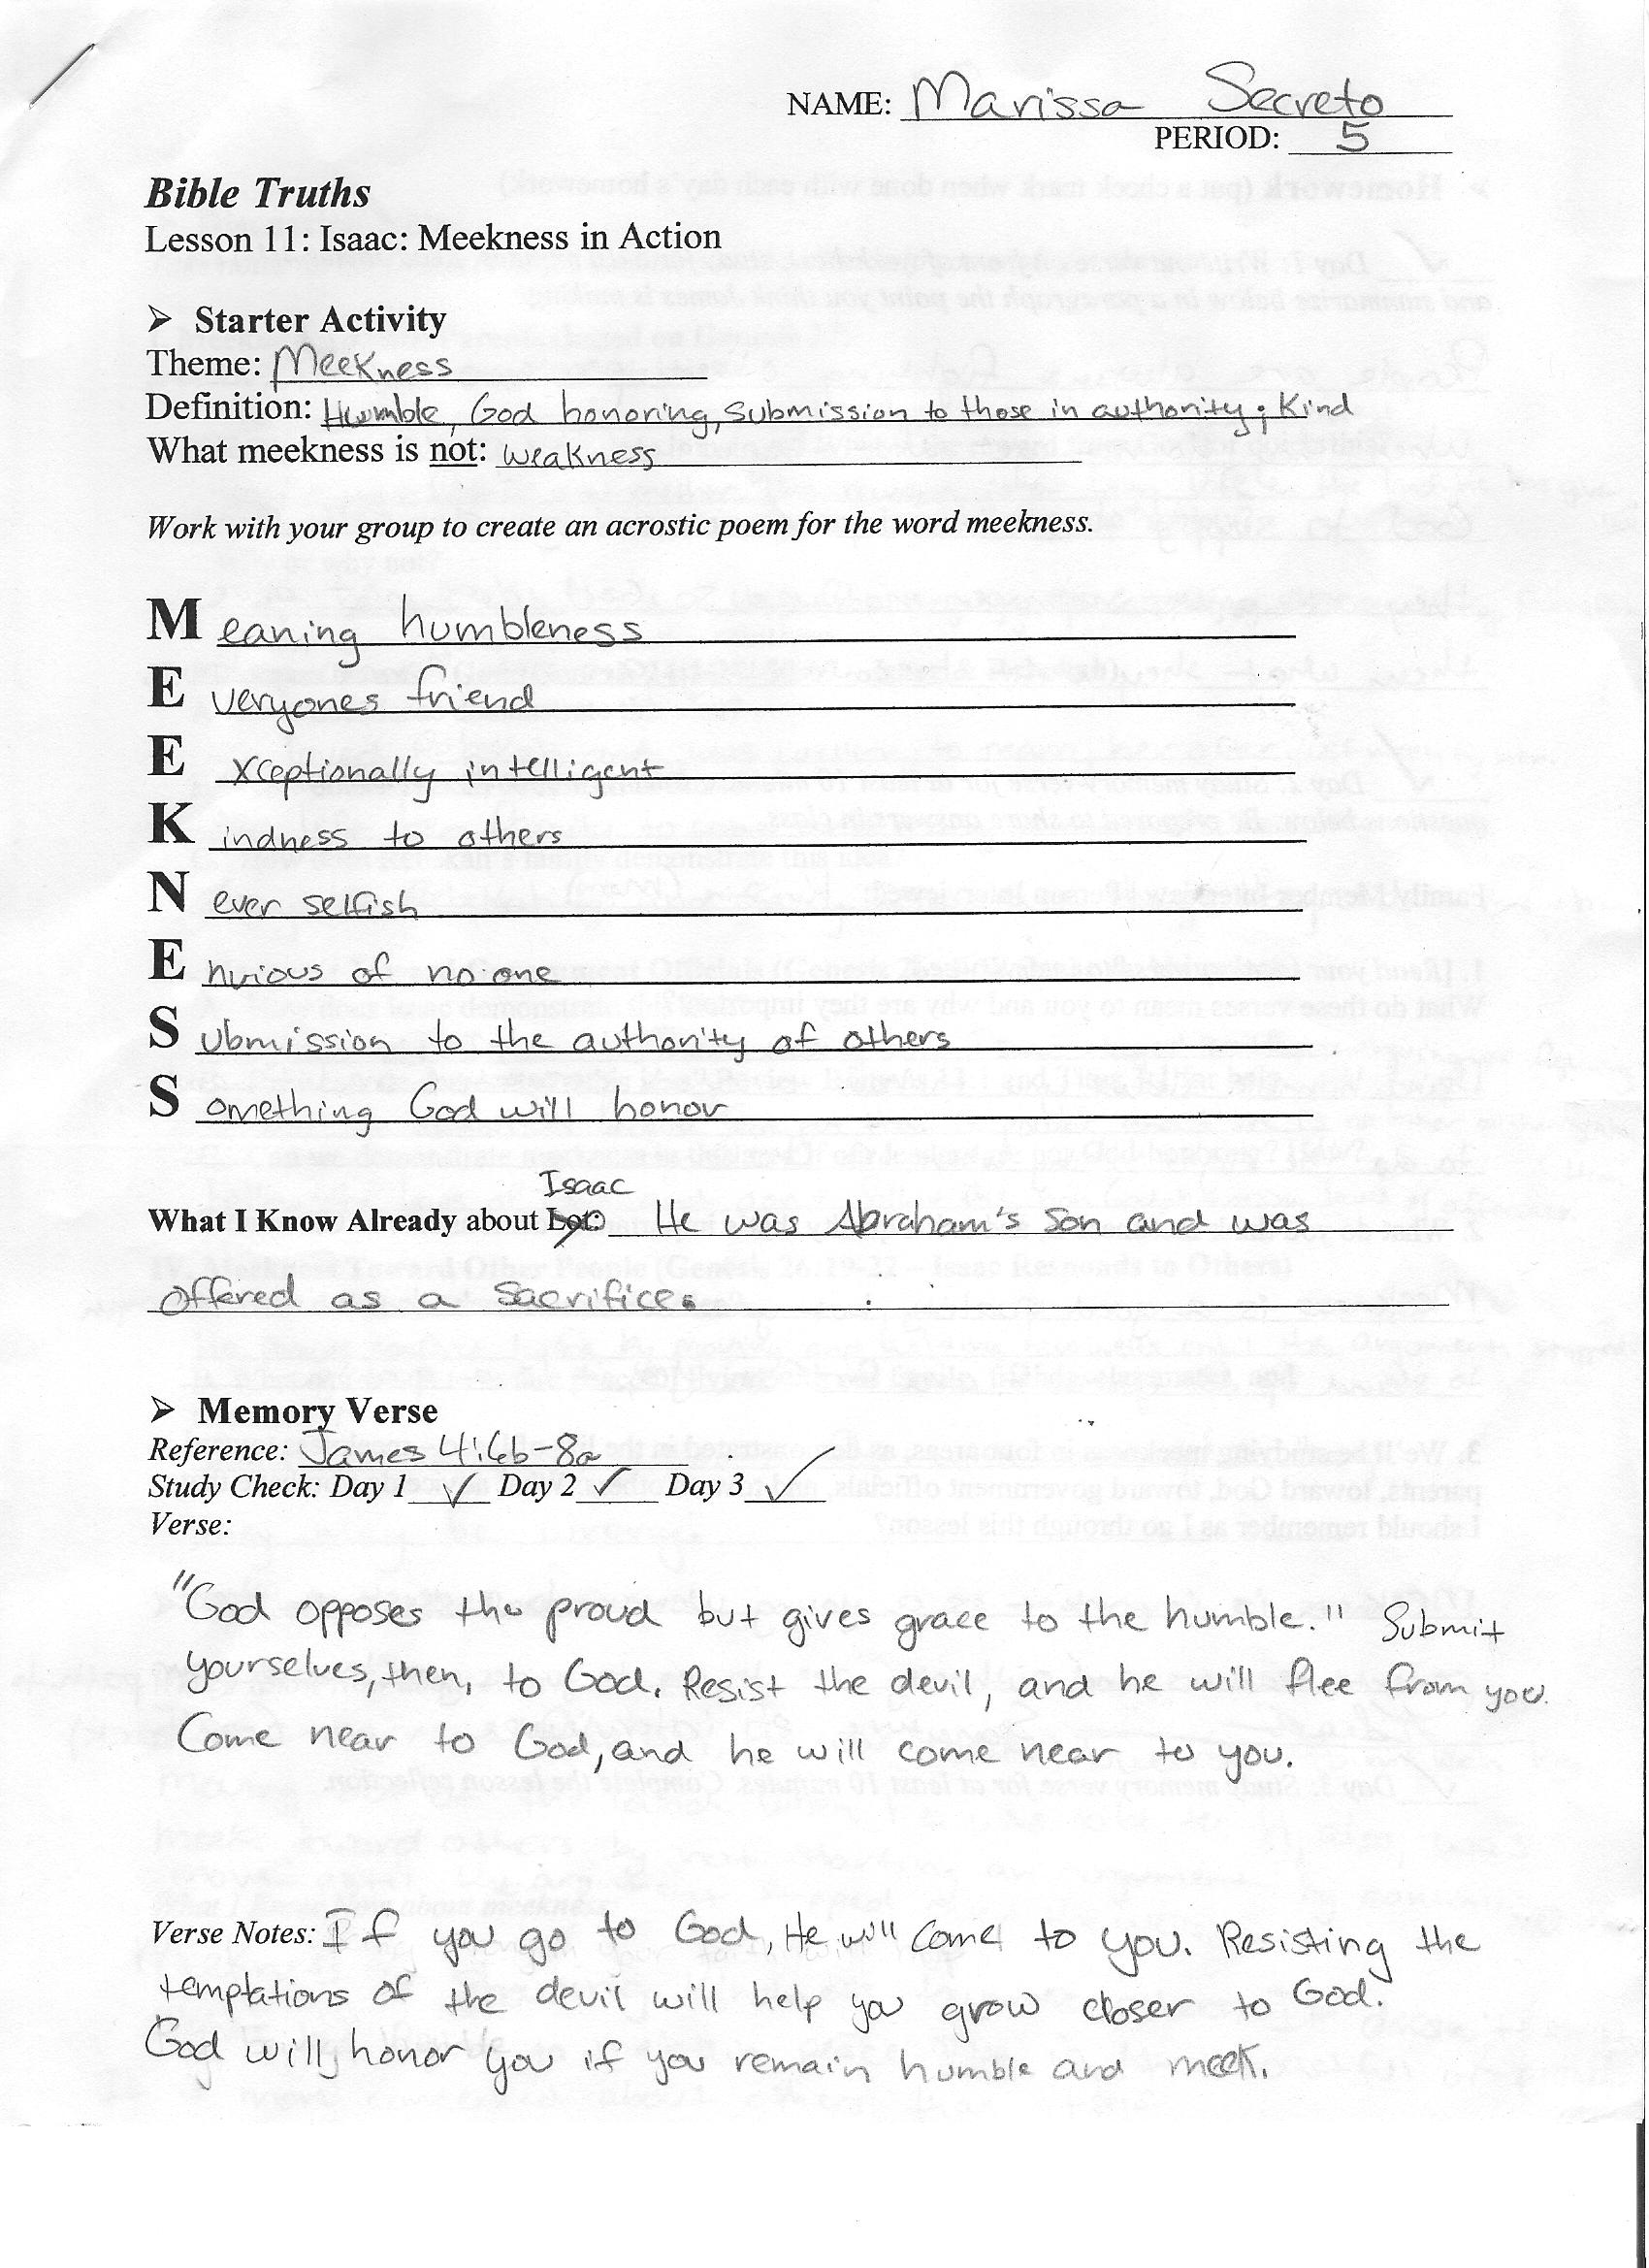 NAME: Marissa Secreto
PERIOD: 5
Bible Truths
Lesson 11: Isaac: Meekness in Action
➢ Starter Activity
Theme: Meekness
Definition: Humble, God honoring, submission to those in authority; Kind
What meekness is not: weakness
Work with your group to create an acrostic poem for the word meekness.
M eaning humbleness
E veryones friend
E xceptionally intelligent
K indness to others
N ever selfish
E nvious of no one
S ubmission to the authority of others
S omething God will honor
Isaac
What I Know Already about Lot: He was Abraham's Son and was
offered as a sacrifice.
➢ Memory Verse
Reference: James 4:6b-8a
Study Check: Day 1 ✓ Day 2 ✓ Day 3 ✓
Verse:
"God opposes the proud but gives grace to the humble." Submit
yourselves, then, to God. Resist the devil, and he will flee from you.
Come near to God, and he will come near to you.
Verse Notes: If you go to God, He will come to you. Resisting the
temptations of the devil will help you grow closer to God.
God will honor you if you remain humble and meek.